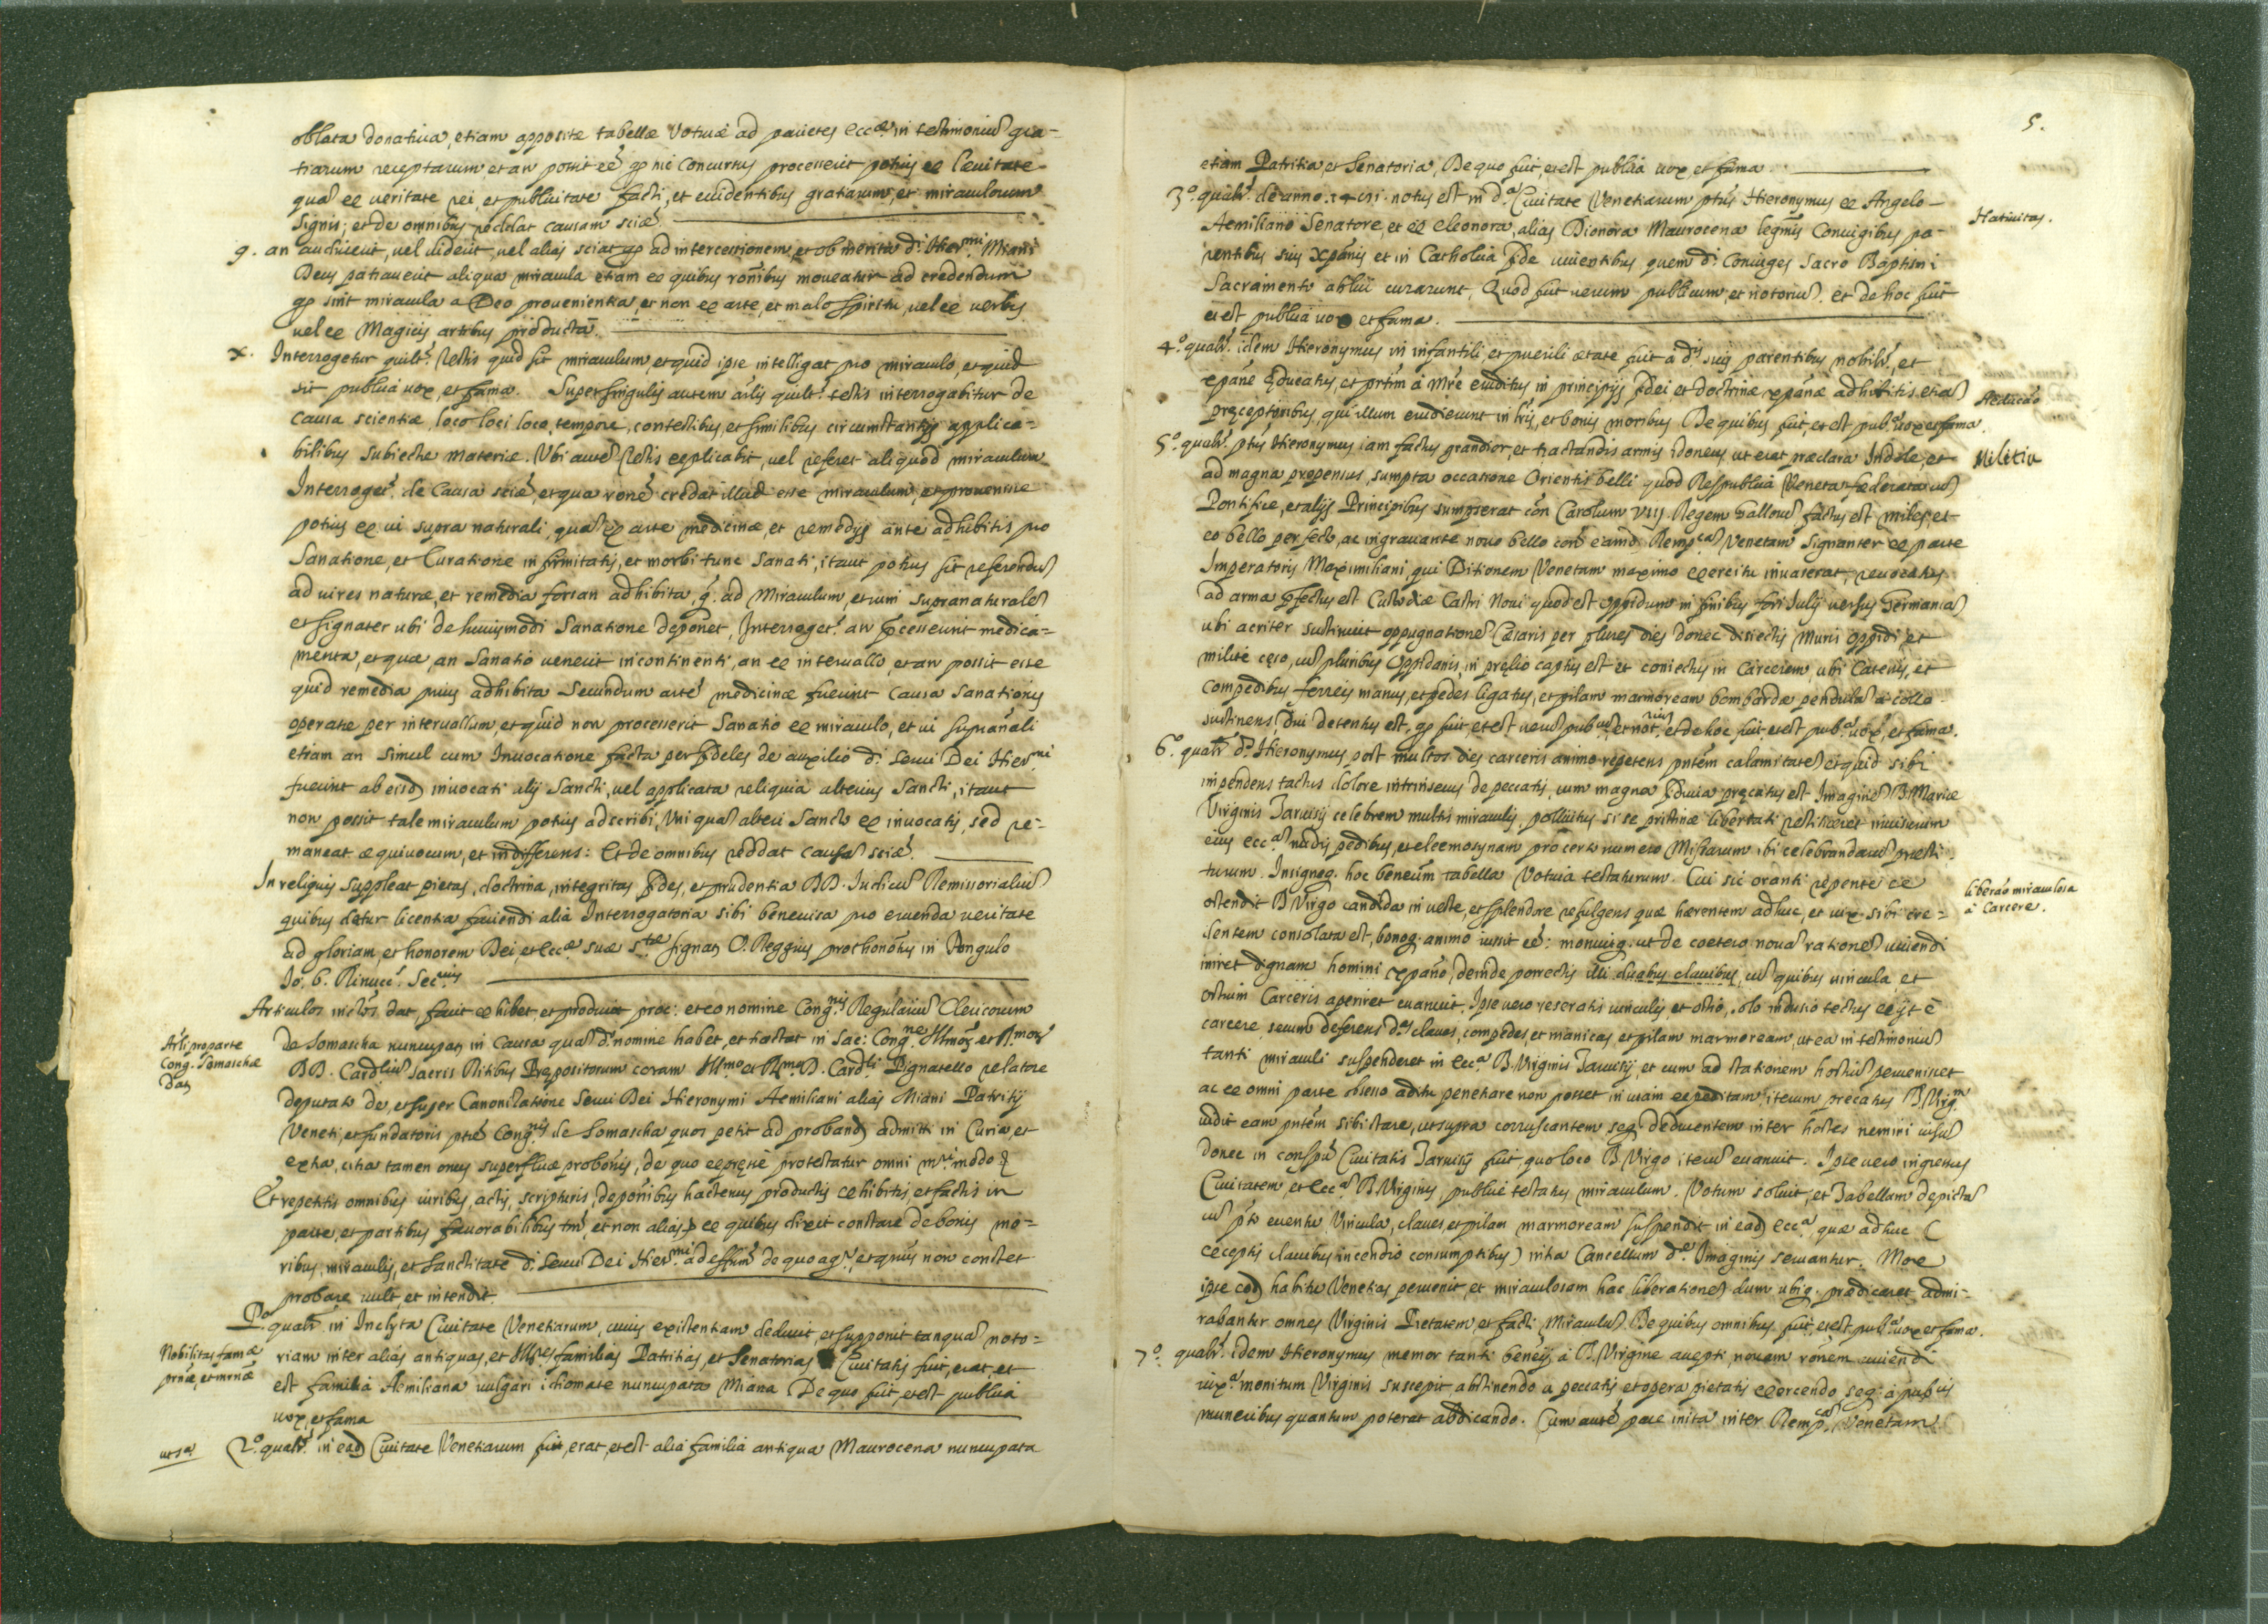 oblata donativa, etiam apposite tabellæ Votivæ ad parietes ecc.æ in testimoniu gra-
tiarum receptarum et an possit eé q hic Concursus processerit potius ex levitate
qua ex veritate rei, et publicitate facti, et evidentibus gratiarum, et miraculorum
signis; et de omnibus reddat causam sciæ
9. an audiverit, vel viderit, vel alias sciat q ad intercessionem, et ob merita d.i Hier.mi Miani
Deus patraverit aliqua miracula etiam ex quibus ronibus moveatur ad credendum
q sint miracula a Deo provenientia, et non ex arte, et malo spiritu, vel ex verbis
vel ex Magicis artibus producta.
x. Interrogetur quilt. Testis quid sit miraculum, et quid ipse intelligat pro miraculo, et quid
sit publica vox, et fama. Super singulis autem arlis quilt. testis interrogabitur de
causa scientiæ, loco loci loco, tempore, contestibus, et similibus circumstantijs applica-
bilibus subiectæ materiæ. Ubi aute Testis explicabit, vel referet aliquod miraculum
Interroget. de Causa sciæ, et qua rone credat illud esse miraculum, et provenisse
potius ex vi supra naturali, qua ex arte medicinæ, et remedijs ante adhibitis pro
Sanatione, et Curatione infirmitatis, et morbi tunc Sanati, itaut potius sit referendu
ad vires naturæ, et remedia forsan adhibita, q. ad Miraculum, et vim supranaturale
et signater ubi de huiusmodi Sanatione deponet, Interroget. an processerint medica-
menta, et quæ, an Sanatio venerit incontinenti, an ex intervallo, et an possit esse
quid remedia prius adhibita Secundum arte medicinæ fuerint causa Sanationis
operatæ per intervallum, et quid non processerit Sanatio ex miraculo, et vi supranali
etiam an simul cum Invocatione facta per fideles de auxilio d.i Servi Dei Hier.mi
fuerint ab eisd invocati alij Sancti, vel applicata reliquia alterius Sancti, itaut
non possit tale miraculum potius adscribi, Uni qua alteri Sancto ex invocatis, sed re-
maneat æquivocum, et indifferens: Et de omnibus reddat causa sciæ.
In reliquis suppleat pietas, doctrina, integritas fides, et prudentia DD. Iudicu Remissorialiu
quibus datur licentia faciendi alia Interrogatoria sibi benevisa pro eruenda veritate
ad gloriam, et honorem Dei, et ecc.æ suæ s.tæ signat O. Reggius prothonots in Angulo
Io. B. Rinucc. Sec.rius
Articulos infros dat, facit exhibet, et producit proc: et eo nomine Cong.nis Regulariu Clericorum
Arli pro parte
Cong. Somaschæ
Dat
de Somascha nuncupat in Causa qua d.o nomine habet, et tractat in Sac: Cong.ne Illmor et Rmor
DD. Cardliu Sacris Ritibus Prepositorum coram Illmo et Rmo D. Card.li Pignatello relatore
deputato de, et super Canonizatione Servi Dei Hieronymi Aemiliani alias Miani Patritij
Veneti, et fundatoris ptæ Cong.nis de Somascha quos petit ad proband admitti in Curia, et
extra, citra tamen onus superfluæ probonis, de quo expresse protestatur omni m.ri modo
Et repetitis omnibus iuribus, actis, scripturis, deponibus hactenus productis exhibitis, et factis in
parte, et partibus favorabilibus tm, et non alias, ex quibus dixit constare de bonis mo-
ribus, miraculis, et Sanctitate d.i Servi Dei Hier.mi ad effum de quo ag.r, et qnus non constet
probare vult, et intendit.
P.o qualr in Inclyta Civitate Venetiarum, cuius existentiam deducit, et supponit tanqua noto-
Nobilitas fama
prnæ, et mrnæ
riam inter alias antiquas, et Illres familias Patritias, et Senatorias Civitatis fuit, erat, et
est familia Aemiliana vulgari idiomate nuncupata Miana De quo fuit, et est publica
vox, et fama
ut s.a
2.o qualr. in ead Civitate Venetiarum fuit, erat, et est alia familia antiqua Maurocena nuncupata
5.
etiam Patritia et Senatoria, De quo fuit, et est publica vox, et fama.
3.o qualr. de anno 1481. notus est in d.a Civitate Venetiarum ptus Hieronymus ex Angelo
Nativitas.
Aemiliano Senatore, et ex Eleonora, alias Dionora Maurocena legmis Coniugibus pa-
rentibus suis Xpanis et in Catholica fide viventibus quem d.i Coniuges Sacro Baptismi
Sacramento ablui curarunt, Quod fuit verum publicum, et notoriu. et de hoc fuit
et est publica vox et fama.
4.o qualr. idem Hieronymus in infantili, et puerili ætate fuit a d.is suis parentibus nobilr, et
xpane Educatus, et prtim a Mre eruditus in principijs fidei et doctrinæ xpanæ adhibitis etia
Aeducao
præceptoribus, qui illum erudierunt in lris, et bonis moribus De quibus fuit, et est pub.a vox et fama.
5.o qualr. ptus Hieronymus iam factus grandior, et tractandis armis idoneus ut erat præclara Indole, et
Militia
ad magna propensus, sumpta occasione Orientis belli quod Respublica Veneta fæderata cu
Pontifice, et alijs Principibus sumpserat con Carolum VIIJ. Regem Gallorú factus est miles, et
eo bello perfecto, ac ingravante novo bello con eamd. Remp.cam Venetam signanter ex parte
Imperatoris Maximiliani, qui Ditionem Venetam maximo exercitu invaserat, revocatus
ad arma prefectus est Custodiæ Castri Novi quod est Oppidum in finibus fori Julij versus Germania
ubi acriter sustinuit oppugnatione Cæsaris per plures dies donec disiectis Muris oppidi et
milite cæso, cu pluribus Oppidanis, in prælio captus est et coniectus in Carcerem, ubi Catenis, et
Compedibus ferreis manus, et pedes ligatus, et pilam marmoream bombardæ pendula a collo
sustinens Diu detentus est, q fuit et est veru pub.cu, et not.riu, et de hoc fuit, et est pub.a vox, et fama.
6.o qualr d.s Hieronymus post multos dies carceris animo repetens pntem calamitate et quid sibi
impendens tactus dolore intrinsecus de peccatis, cum magna fiducia præcatus est Imagine B. Mariæ
Virginis Tarvisij celebrem multis miraculis pollicitus si se pristinæ libertati restitueret invisurum
eius ecc.a nudis pedibus, et eleemosynam pro certo numero Missarum ibi celebrandaru præsti-
turum. Insigneq. hoc beneum tabella Votiva testaturum. Cui sic oranti repente se
liberao miraculosa
à Carcere.
ostendit B Virgo candida in veste, et splendore refulgens quæ hærentem adhuc, et vix sibi cre-
dentem consolata est, bonoq. animo iussit eé: monuitq. ut de coetero nova ratione vivendi
iniret dignam homini xpano, deinde porrectis illi duabus clavibus, cu quibus vincula et
ostium Carceris aperiret evanuit. Ipse vero reseratis vinculis, et ostio, solo indusio tectus exijt é
carcere, secum deferens d.as claves, compedes, et manicas, et pilam marmoream, ut ea in testimoniu
tanti miraculi suspenderet in Ecc.a B. Virginis Tarvisij, et cum ad stationem hostiu pervenisset
ac ex omni parte obsesso aditu penetrare non posset in viam expeditam, iterum precatus B. Virg.m
vidit eam pntem sibi stare, ut supra corruscantem seq. deducentem inter hostes nemini visu
donec in conspu Civitatis Tarvisij fuit, quo loco B Virgo iteru evanuit. Ipse vero ingressus
Civitatem, et Ecc.a B. Virginis, publice testatus miraculum. Votum soluit, et Tabellam depicta
cu pto eventu Vincula, claves, et pilam marmoream suspendit in ead Ecc.a quæ adhuc (
exceptis clavibus incendio consumptibus) intra Cancellum d.æ Imaginis servantur. Mox
ipse eod habitu Venetias pervenit, et miraculosam hac liberatione dum ubiq. prædicaret admi-
rabantur omnes Virginis Pietatem, et facti Miraculu. De quibus omnibus fuit, et est pub.a vox et fama.
7.o qualr. idem Hieronymus memor tanti beneij à B. Virgine accepti, novam ronem vivendi
iux.a monitum Virginis suscepit abstinendo a peccatis, et opera pietatis exercendo, seq. à pub.cis
muneribus quantum poterat abdicando. Cum auté pace inita inter Remp.cam Venetam